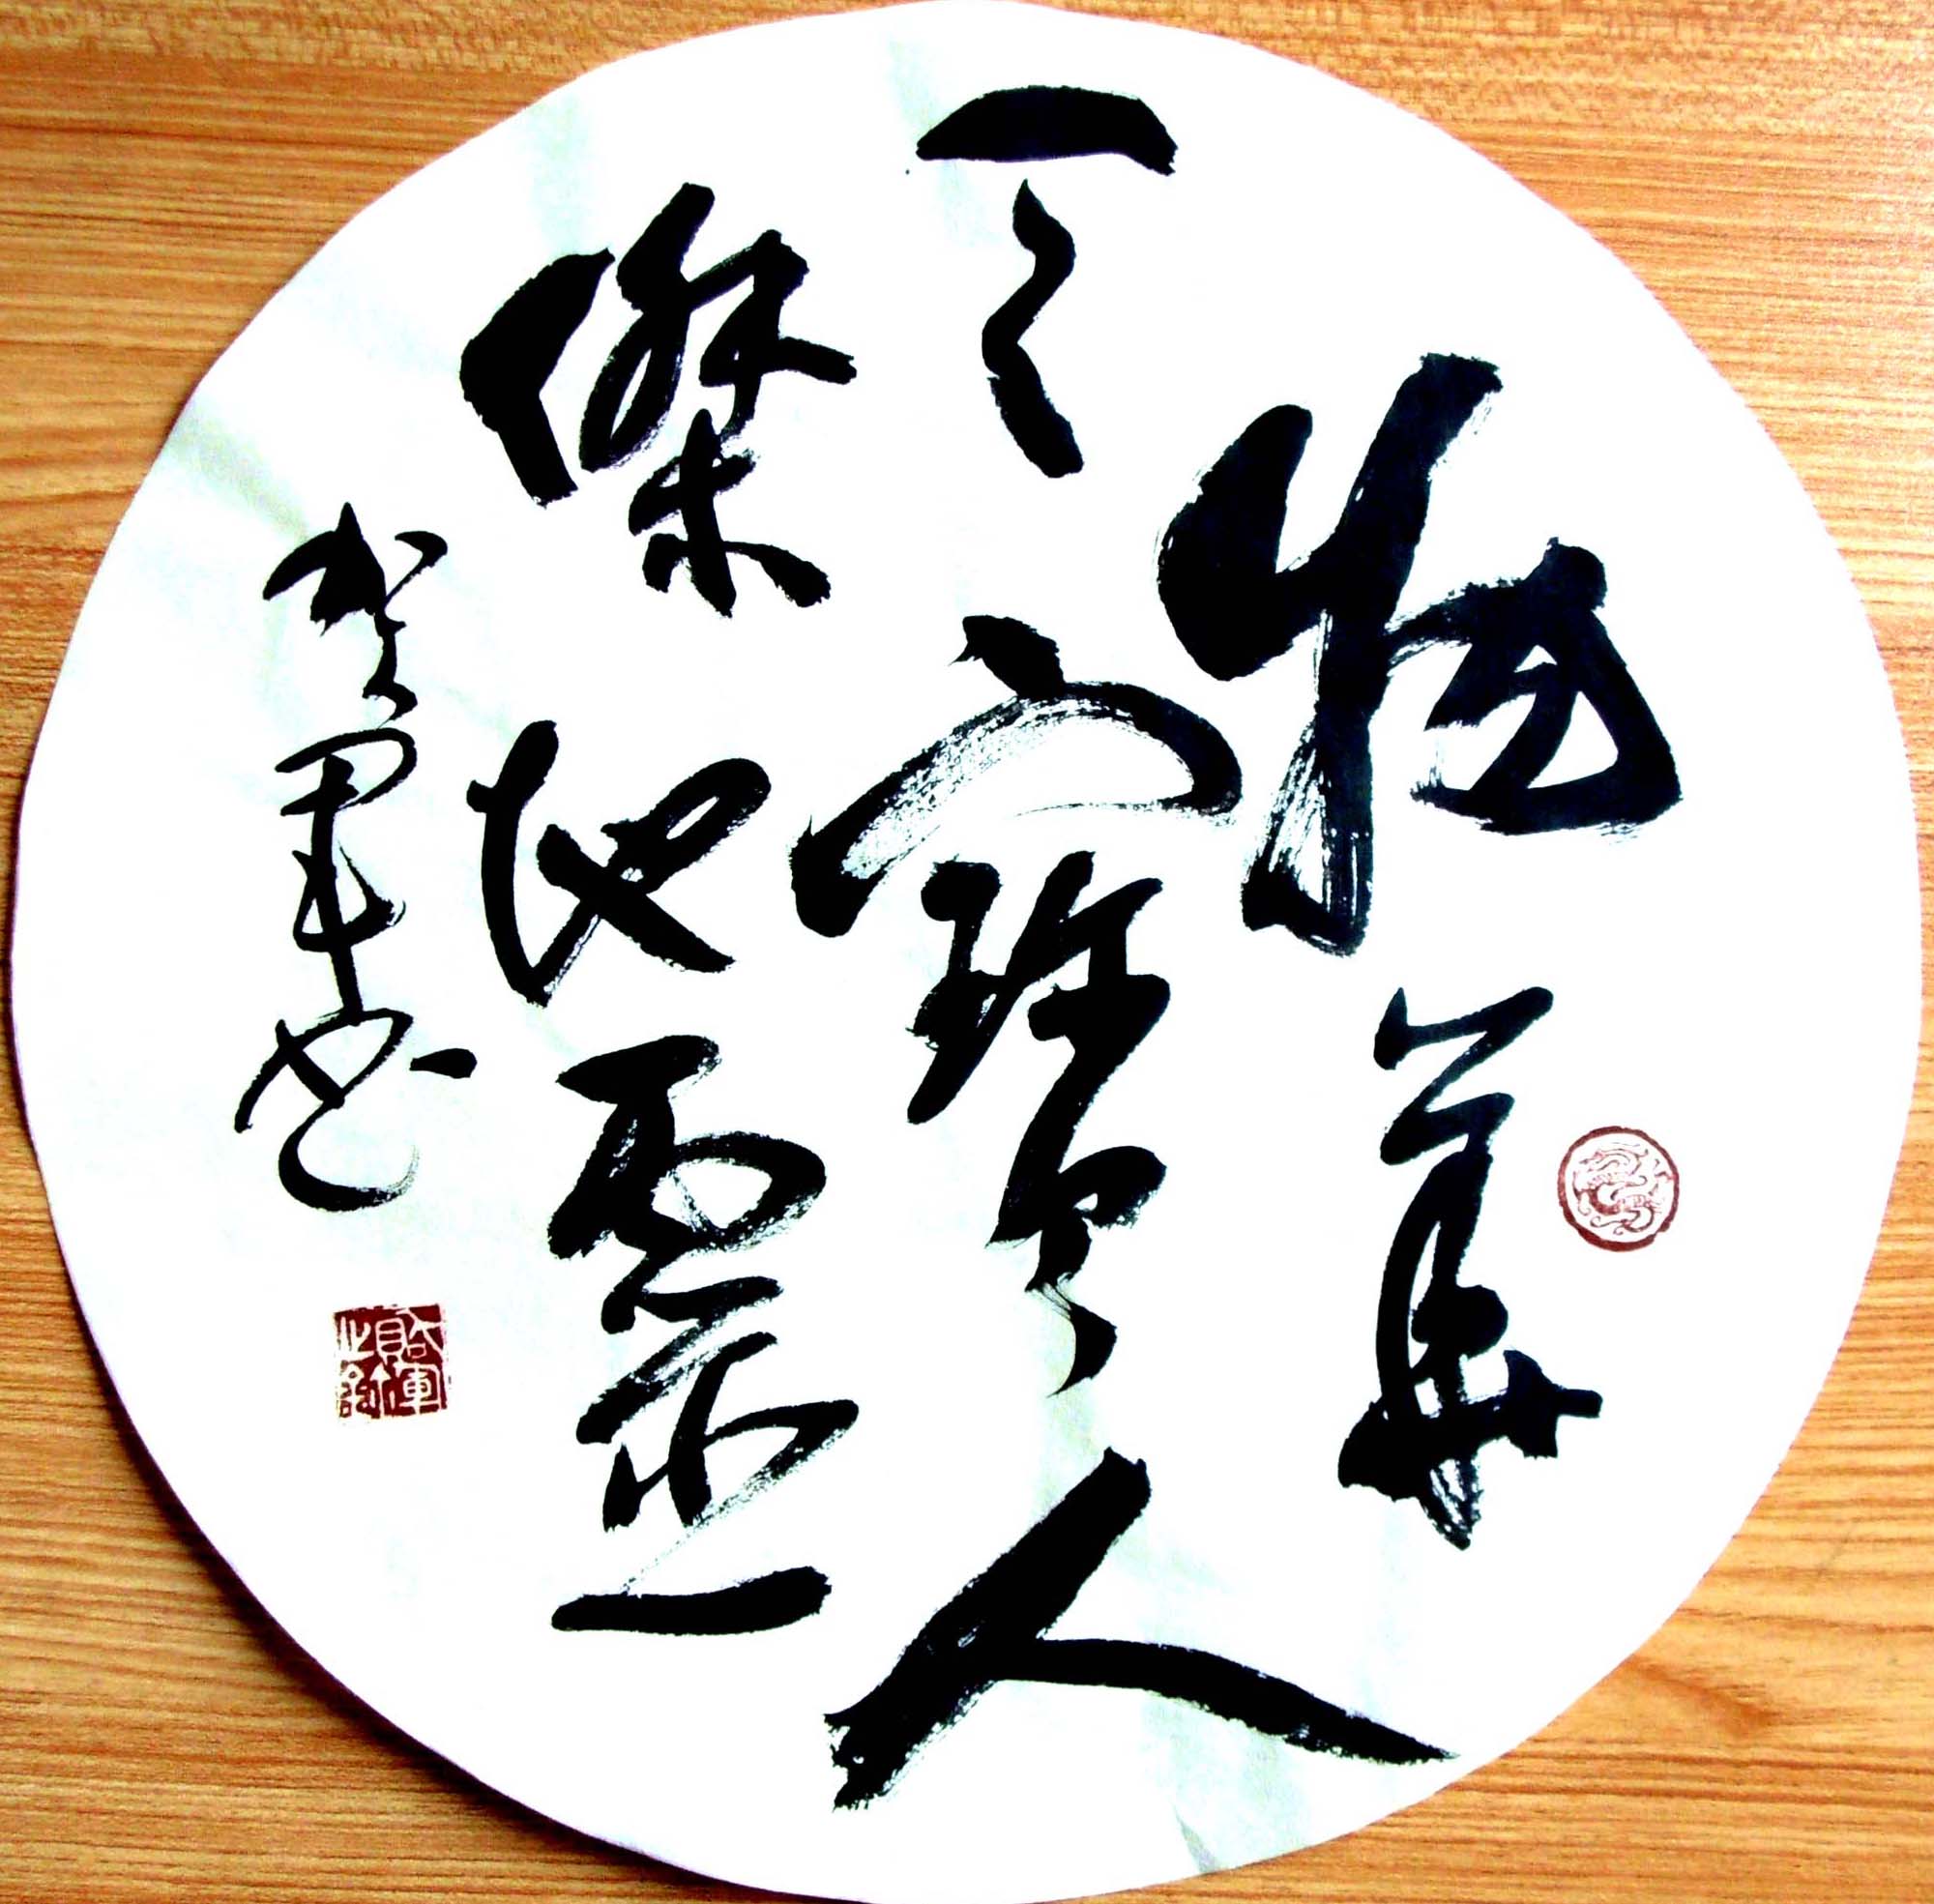 物華
天寶人
傑地靈
軍书